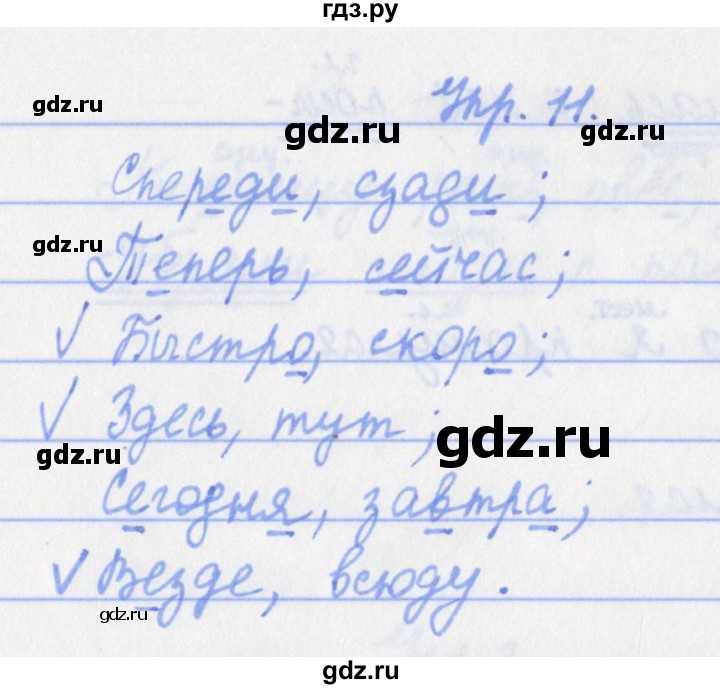 гдз.ру
gdz.ru
Упр. 11.
gdz.ru
gdz.ru
Спереди, сзади;
gdz.ru
Теперь, сейчас;
✓ Быстро, скоро;
✓ Здесь, тут;
gdz.ru
gdz.ru
Сегодня, завтра;
✓ Везде, всюду.
gdz.ru
gdz.ru